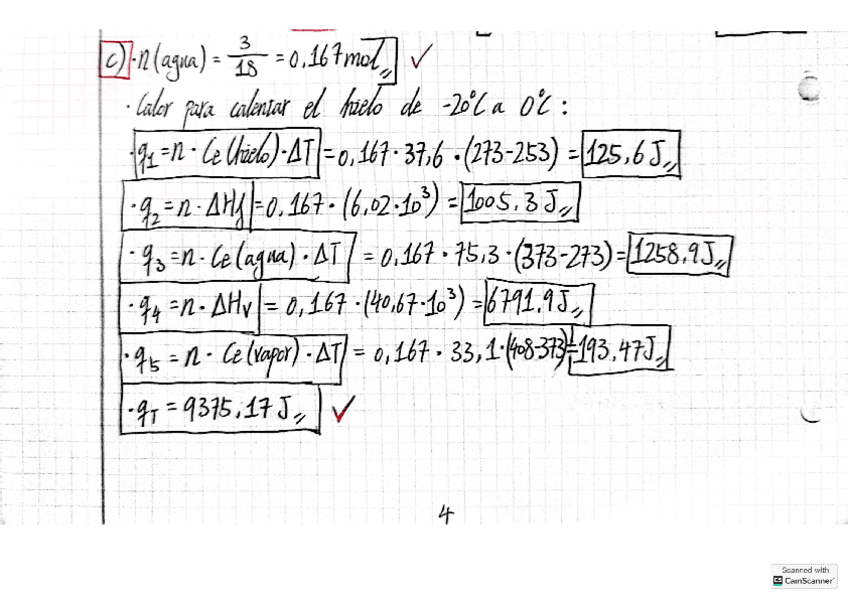 c) · n(agua) = 3/18 = 0,167 mol,, ✓
· Calor para calentar el hielo de -20°C a 0°C :
· q1 = n · Ce(hielo) · ΔT = 0,167 · 37,6 · (273-253) = 125,6 J,,
· q2 = n · ΔHf = 0,167 · (6,02·10³) = 1005,3 J,,
· q3 = n · Ce(agua) · ΔT = 0,167 · 75,3 · (373-273) = 1258,9 J,,
· q4 = n · ΔHv = 0,167 · (40,67·10³) = 6791,9 J,,
· q5 = n · Ce(vapor) · ΔT = 0,167 · 33,1 · (408-373) = 193,47 J,,
· qT = 9375,17 J,, ✓
4
Scanned with
CS CamScanner